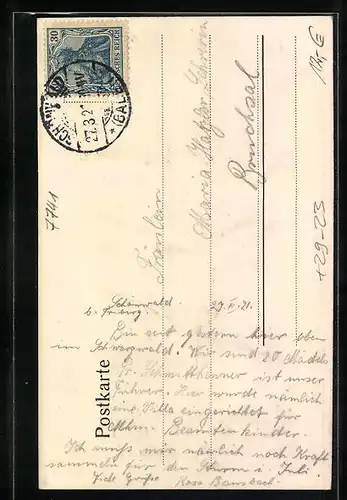 30
DEUTSCHES REICH
27.3.21
(BADEN)
12,- €
7741
+29-23
Postkarte
Fräulein
Maria
Bruchsal
Schönwald 27. III. 21.
b. Triberg.
Bin seit gestern hier oben
im Schwarzwald. Wir sind 20 Mädels
Pr. ist unser
Führer. Hier wurde nämlich
eine Villa eingerichtet für
Beamtenkinder.
Ich muß mir nämlich noch Kraft
sammeln für den Sturm i. Juli.
Viele Grüße Rosa